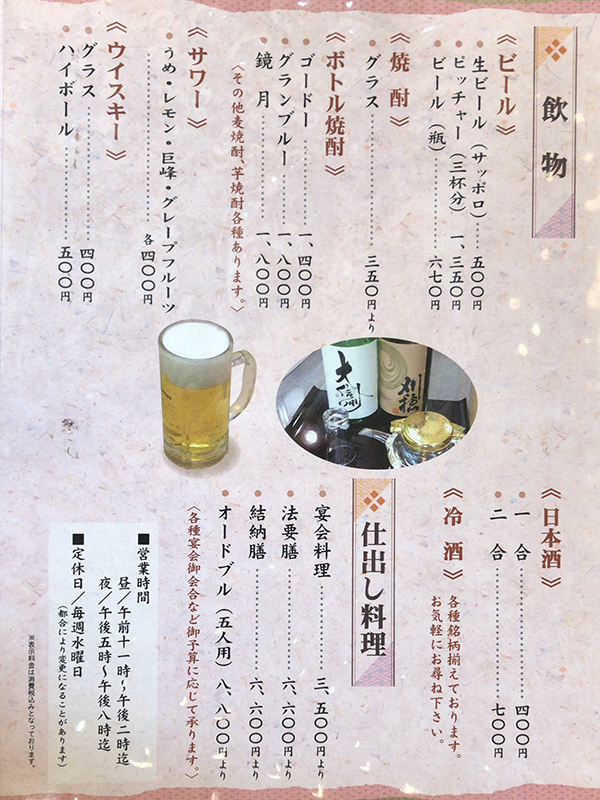 飲物
《ビール》
生ビール（サッポロ）……五〇〇円
ピッチャー（三杯分）一、三五〇円
ビール（瓶）……六七〇円
《焼酎》
グラス……三五〇円より
《ボトル焼酎》
ゴードー……一、四〇〇円
グランブルー……一、八〇〇円
鏡月……一、八〇〇円
〈その他麦焼酎、芋焼酎各種あります。〉
《サワー》
うめ・レモン・巨峰・グレープフルーツ
……各四〇〇円
《ウイスキー》
グラス……四〇〇円
ハイボール……五〇〇円
大信州
刈穂
《日本酒》
一合……四〇〇円
二合……七〇〇円
《冷酒》
各種銘柄揃えております。
お気軽にお尋ね下さい。
仕出し料理
宴会料理……三、五〇〇円より
法要膳……六、六〇〇円より
結納膳……六、六〇〇円より
オードブル（五人用）八、八〇〇円より
〈各種宴会御会合など御予算に応じて承ります。〉
■営業時間
昼／午前十一時〜午後二時迄
夜／午後五時〜午後八時迄
■定休日／毎週水曜日
（都合により変更になることがあります）
※表示料金は消費税込みとなっております。